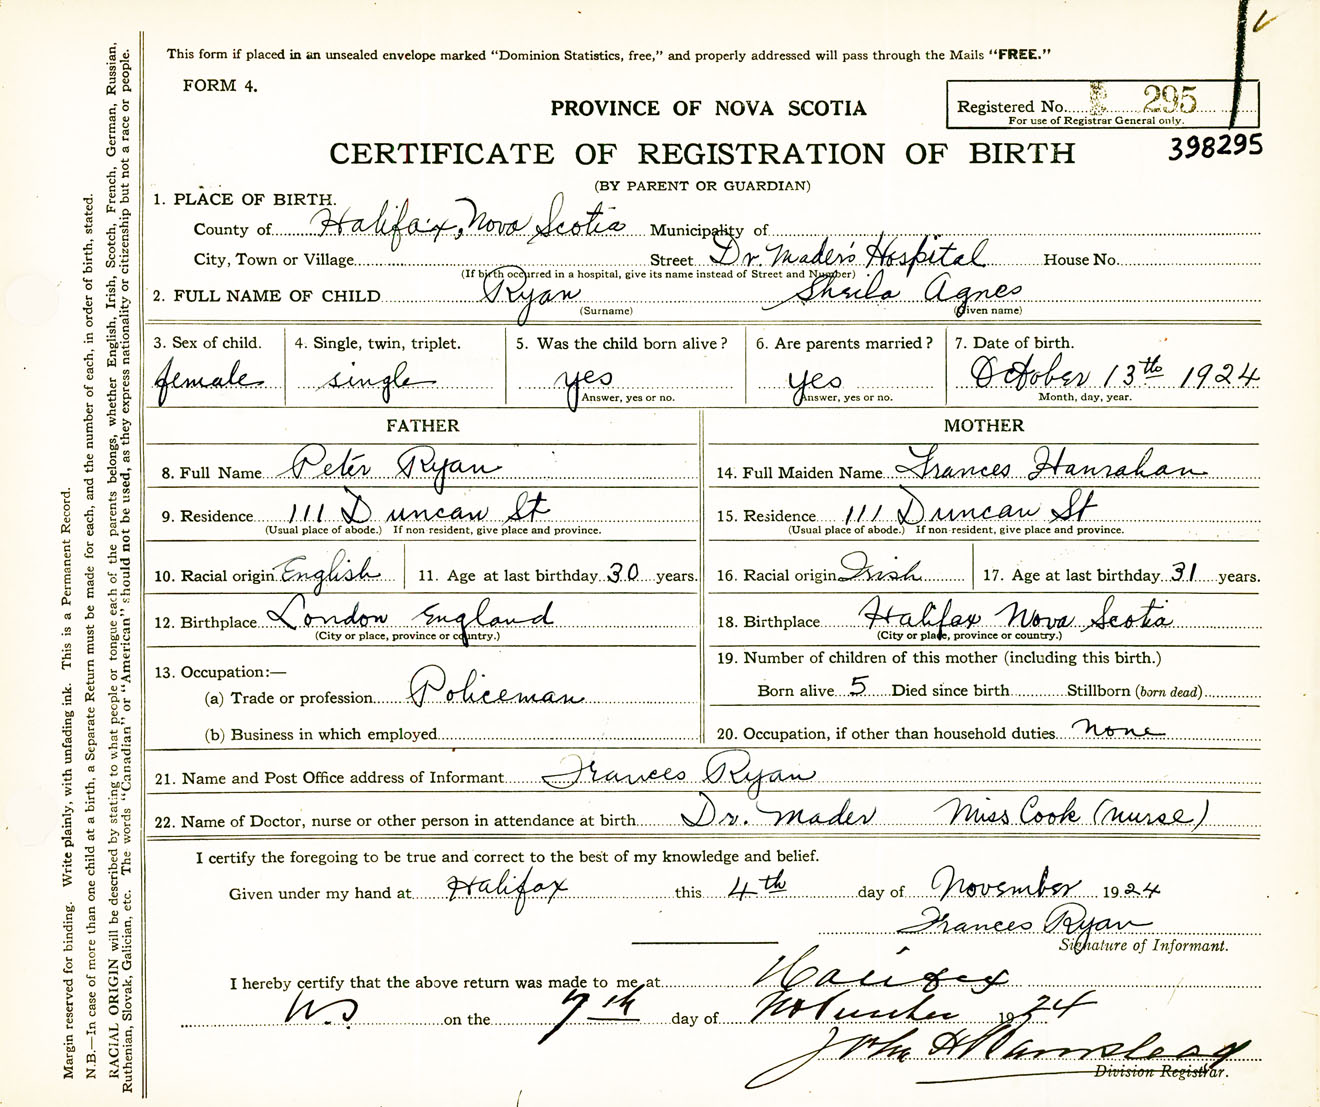 This form if placed in an unsealed envelope marked “Dominion Statistics, free,” and properly addressed will pass through the Mails “FREE.”
FORM 4.
Registered No. 295
For use of Registrar General only.
PROVINCE OF NOVA SCOTIA
398295
CERTIFICATE OF REGISTRATION OF BIRTH
(BY PARENT OR GUARDIAN)
1. PLACE OF BIRTH.
County of Halifax, Nova Scotia Municipality of
City, Town or Village Street Dr. Mader's Hospital House No.
(If birth occurred in a hospital, give its name instead of Street and Number)
2. FULL NAME OF CHILD Ryan Sheila Agnes
(Surname) (Given name)
3. Sex of child. 4. Single, twin, triplet. 5. Was the child born alive? 6. Are parents married? 7. Date of birth.
female single yes yes October 13th 1924
Answer, yes or no. Answer, yes or no. Month, day, year.
FATHER MOTHER
8. Full Name Peter Ryan 14. Full Maiden Name Frances Hanrahan
9. Residence 111 Duncan St 15. Residence 111 Duncan St
(Usual place of abode.) If non-resident, give place and province. (Usual place of abode.) If non-resident, give place and province.
10. Racial origin English 11. Age at last birthday 30 years. 16. Racial origin Irish 17. Age at last birthday 31 years.
12. Birthplace London England 18. Birthplace Halifax Nova Scotia
(City or place, province or country.) (City or place, province or country.)
13. Occupation:— 19. Number of children of this mother (including this birth.)
(a) Trade or profession Policeman Born alive 5 Died since birth Stillborn (born dead)
(b) Business in which employed 20. Occupation, if other than household duties none
21. Name and Post Office address of Informant Frances Ryan
22. Name of Doctor, nurse or other person in attendance at birth Dr. Mader Miss Cook (nurse)
I certify the foregoing to be true and correct to the best of my knowledge and belief.
Given under my hand at Halifax this 4th day of November 1924
Frances Ryan
Signature of Informant.
I hereby certify that the above return was made to me at Halifax
N.S on the 7th day of November 1924
John H
Division Registrar.
Margin reserved for binding. Write plainly, with unfading ink. This is a Permanent Record.
N.B.—In case of more than one child at a birth, a Separate Return must be made for each, and the number of each, in order of birth, stated.
RACIAL ORIGIN will be described by stating to what people or tongue each of the parents belongs, whether English, Irish, Scotch, French, German, Russian,
Ruthenian, Slovak, Galician, etc. The words “Canadian” or “American” should not be used, as they express nationality or citizenship but not a race or people.